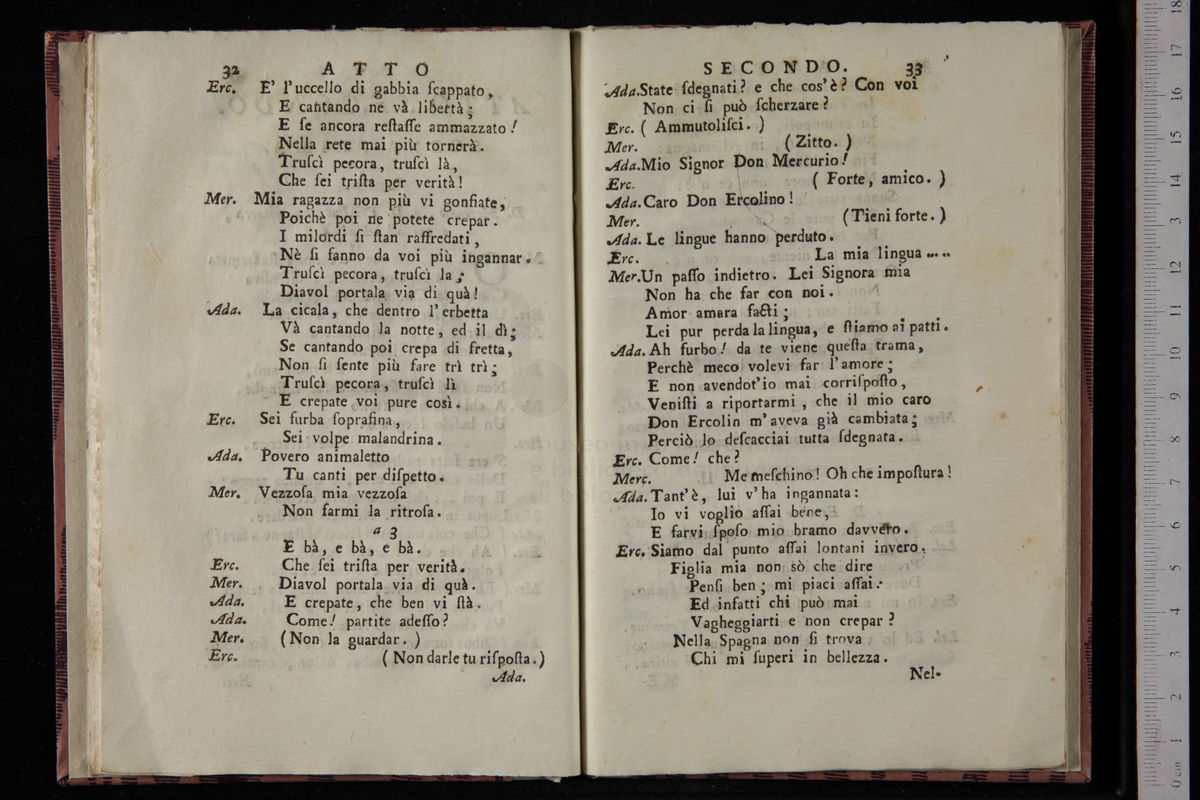 32 ATTO
Erc. E' l'uccello di gabbia ſcappato,
E cantando ne và libertà;
E ſe ancora reſtaſſe ammazzato!
Nella rete mai più tornerà.
Truſcì pecora, truſcì là,
Che ſei triſta per verità!
Mer. Mia ragazza non più vi gonfiate,
Poichè poi ne potete crepar.
I milordi ſi ſtan raffredati,
Nè ſi fanno da voi più ingannar.
Truſcì pecora, truſcì la;
Diavol portala via di quà!
Ada. La cicala, che dentro l'erbetta
Và cantando la notte, ed il dì;
Se cantando poi crepa di fretta,
Non ſi ſente più fare trì trì;
Truſcì pecora, truſcì lì
E crepate voi pure così.
Erc. Sei furba ſoprafina,
Sei volpe malandrina.
Ada. Povero animaletto
Tu canti per diſpetto.
Mer. Vezzoſa mia vezzoſa
Non farmi la ritroſa.
a 3
E bà, e bà, e bà.
Erc. Che ſei triſta per verità.
Mer. Diavol portala via di quà.
Ada. E crepate, che ben vi ſtà.
Ada. Come! partite adeſſo?
Mer. (Non la guardar.)
Erc. (Non darle tu riſpoſta.)
Ada.
SECONDO. 33
Ada. State ſdegnati? e che cos'è? Con voi
Non ci ſi può ſcherzare?
Erc. (Ammutoliſci.)
Mer. (Zitto.)
Ada. Mio Signor Don Mercurio!
Erc. (Forte, amico.)
Ada. Caro Don Ercolino!
Mer. (Tieni forte.)
Ada. Le lingue hanno perduto.
Erc. La mia lingua .....
Mer. Un paſſo indietro. Lei Signora mia
Non ha che far con noi.
Amor amara facti;
Lei pur perda la lingua, e ſtiamo ai patti.
Ada. Ah furbo! da te viene queſta trama,
Perchè meco volevi far l'amore;
E non avendot'io mai corriſpoſto,
Veniſti a riportarmi, che il mio caro
Don Ercolin m'aveva già cambiata;
Perciò lo deſcacciai tutta ſdegnata.
Erc. Come! che?
Merc. Me meſchino! Oh che impoſtura!
Ada. Tant'è, lui v'ha ingannata:
Io vi voglio aſſai bene,
E farvi ſpoſo mio bramo davvero.
Erc. Siamo dal punto aſſai lontani invero.
Figlia mia non sò che dire
Penſi ben; mi piaci aſſai:
Ed infatti chi può mai
Vagheggiarti e non crepar?
Nella Spagna non ſi trova
Chi mi ſuperi in bellezza.
Nel-